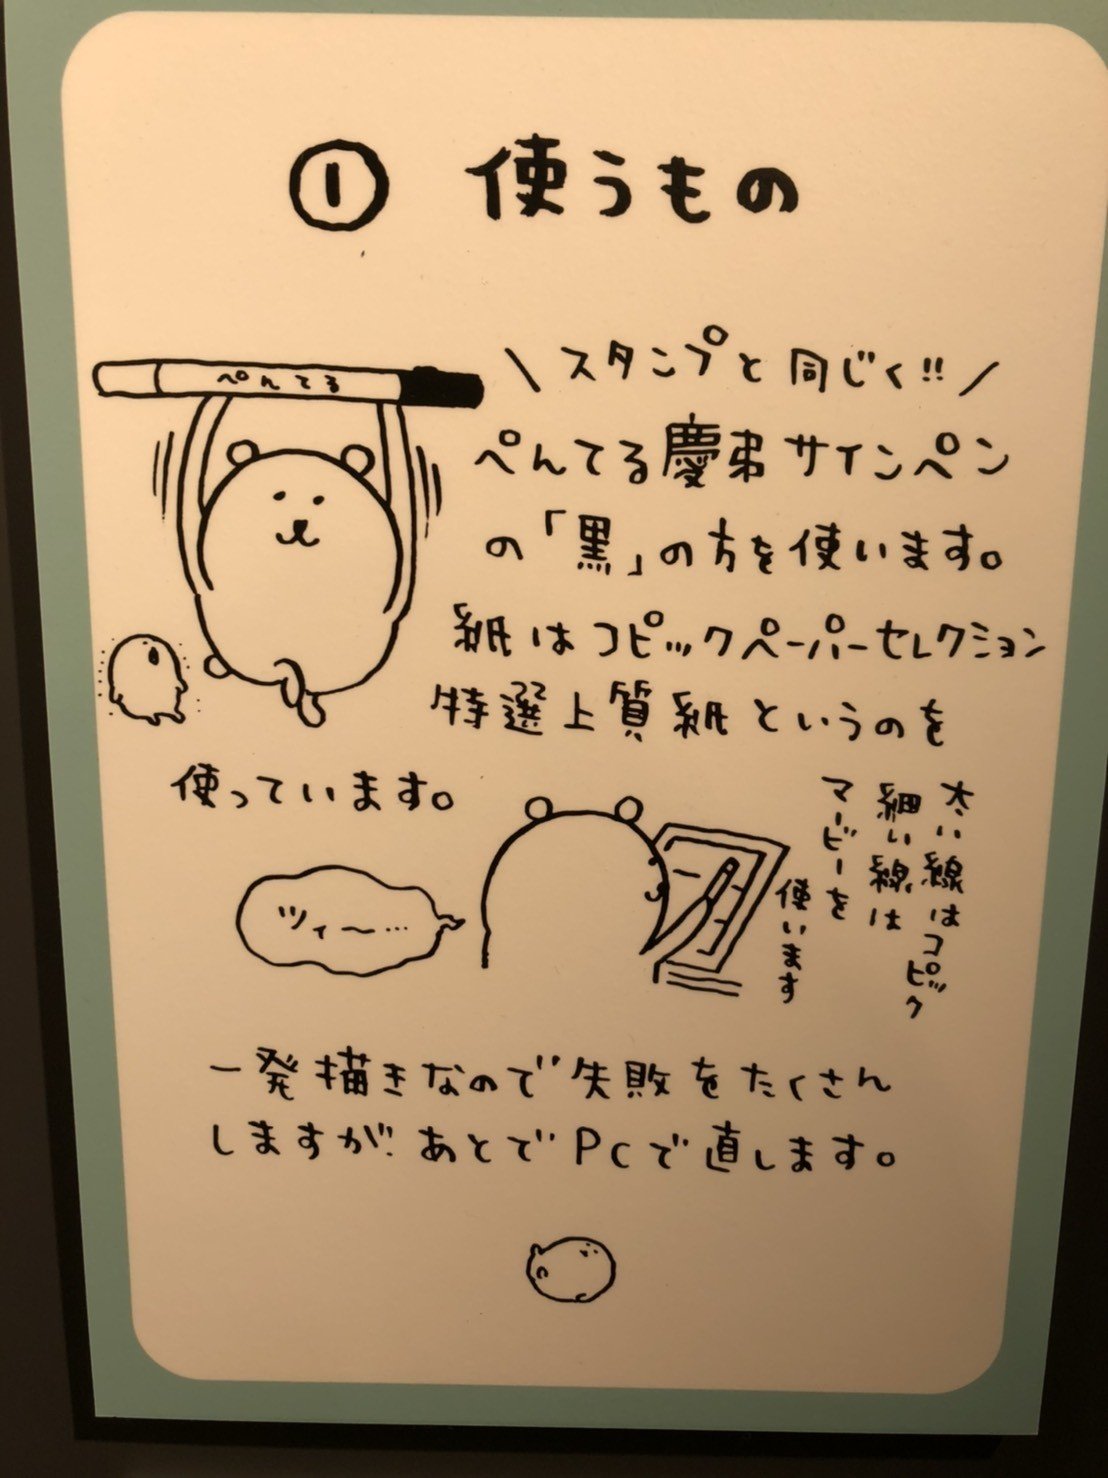 ① 使うもの
\ スタンプと同じく!! /
ぺんてる
ぺんてる慶弔サインペン
の「黒」の方を使います。
紙はコピックペーパーセレクション
特選上質紙というのを
使っています。
太い線はコピック
細い線は
マービーを
使います
ツィ〜…
一発描きなので失敗をたくさん
しますが、あとでPCで直します。